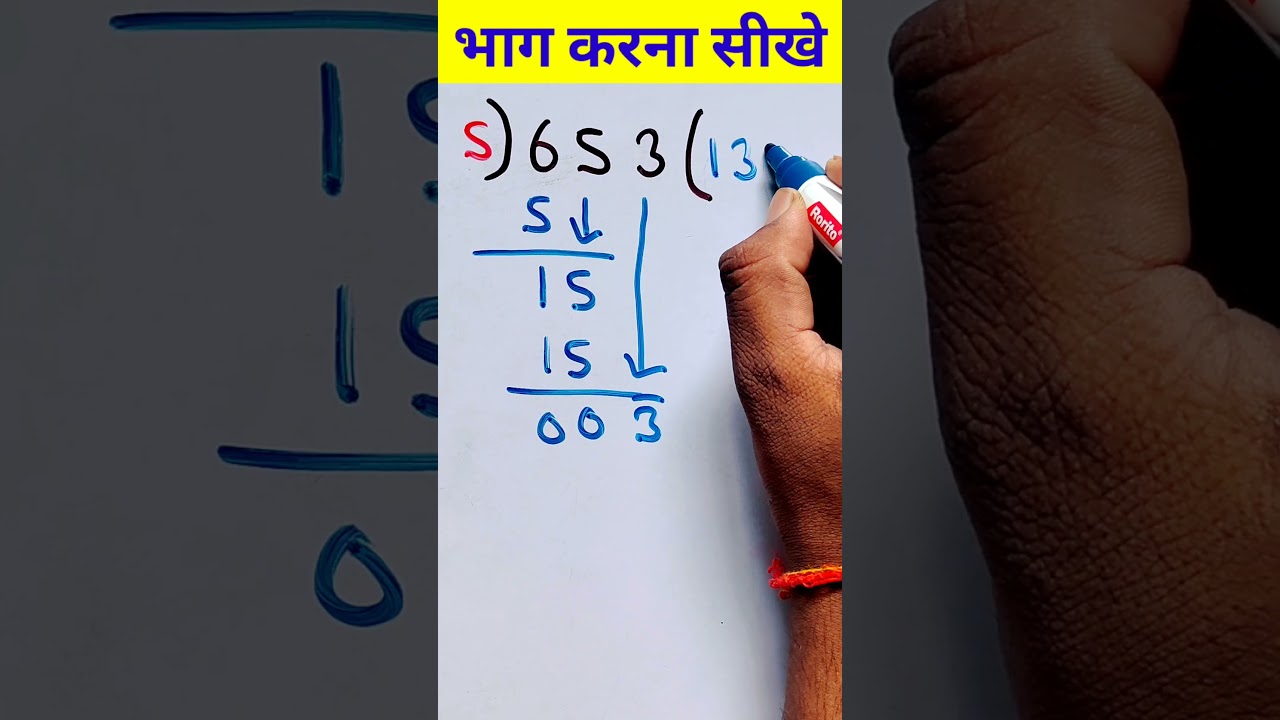 भाग करना सीखे
5) 653 (13
5
15
15
003
Rorito